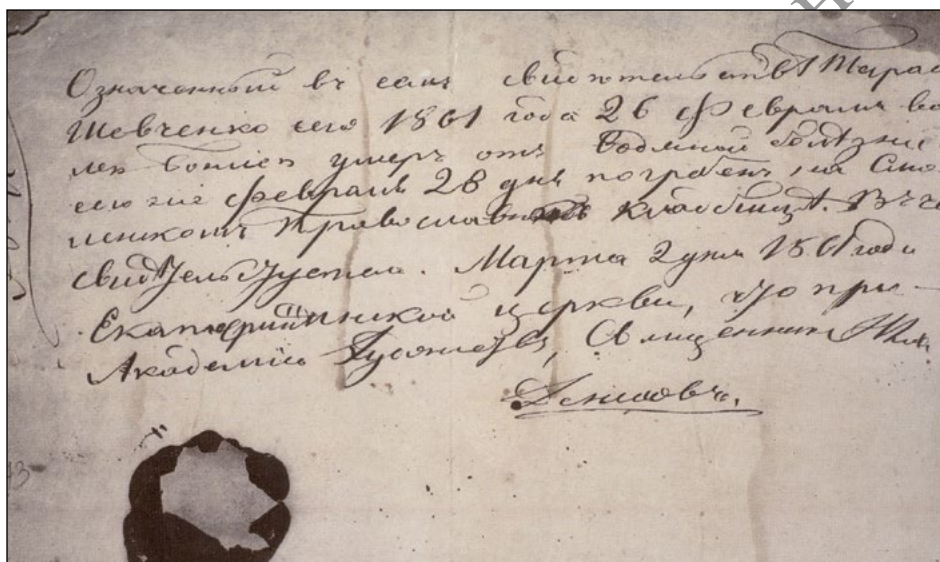 Означенный въ семъ свидѣтельствѣ Тарас
Шевченко сего 1861 года 26 Февраля во
умеръ отъ водяной болѣзни
сего же Февраля 28 дня погребенъ на Смо
ленскомъ Православномъ кладбищѣ. В че
свидѣтельствую. Марта 2 дня 1861 года
Екатерининской церкви, что при
Академіи Художествъ, Священник